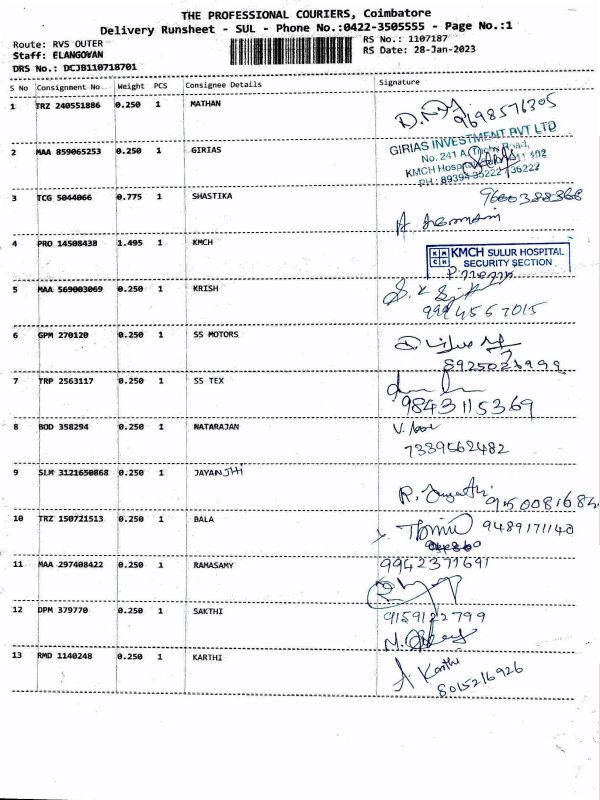 THE PROFESSIONAL COURIERS, Coimbatore
Delivery Runsheet - SUL - Phone No.:0422-3505555 - Page No.:1
Route: RVS OUTER RS No.: 1107187
Staff: ELANGOVAN RS Date: 28-Jan-2023
DRS No.: DCJB110718701
S No Consignment No Weight PCS Consignee Details Signature
1 TRZ 240551886 0.250 1 MATHAN
9698576305
2 MAA 859065253 0.250 1 GIRIAS GIRIAS INVESTMENT PVT LTD
No. 241 A, Trichy Road,
KMCH Hospital
3 TCG 5044066 0.775 1 SHASTIKA 9600388368
4 PRO 14508438 1.495 1 KMCH KMCH SULUR HOSPITAL
SECURITY SECTION
5 MAA 569003069 0.250 1 KRISH
9994567015
6 GPM 270120 0.250 1 SS MOTORS
8925021999
7 TRP 2563117 0.250 1 SS TEX
9843115369
8 BOD 358294 0.250 1 NATARAJAN
7339562482
9 SLM 3121650868 0.250 1 JAYANTHI
R. Jayathi 9150081684
10 TRZ 150721513 0.250 1 BALA 9489171140
11 MAA 297408422 0.250 1 RAMASAMY 9942371691
12 DPM 379770 0.250 1 SAKTHI 9159122799
13 RMD 1140248 0.250 1 KARTHI A Karthi
8015216926